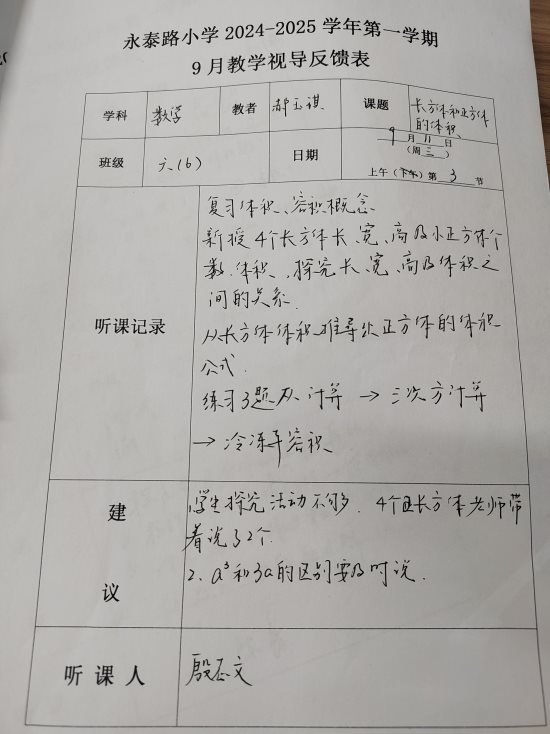 永泰路小学 2024-2025 学年第一学期
9 月教学视导反馈表
学科 数学 教者 郝玉琪 课题 长方体和正方体的体积
班级 六(6) 日期 9月11日
(周三)
上午(下午)第 3 节
听课记录
复习体积、容积概念
新授 4个长方体长、宽、高及小正方体个
数、体积、探究长、宽、高及体积之
间的关系.
从长方体体积推导出正方体的体积
公式.
练习3题从计算 → 三次方计算
→ 冷冻车容积
建议
学生探究活动不够. 4个长方体老师带
着说了2个.
2、a³和3a的区别要及时说.
听课人 殷正文